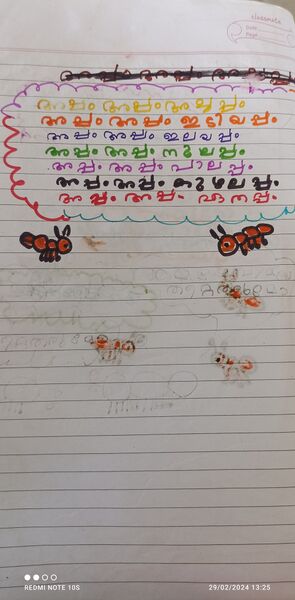 classmate
Date
Page
അപ്പം അപ്പം
അപ്പം അപ്പം ഇടിയപ്പം
അപ്പം അപ്പം ഇലയപ്പം
അപ്പം അപ്പം നൂലപ്പം
അപ്പം അപ്പം പാലപ്പം
അപ്പം അപ്പം കുഴലപ്പം
അപ്പം അപ്പം
REDMI NOTE 10S
29/02/2024 13:25